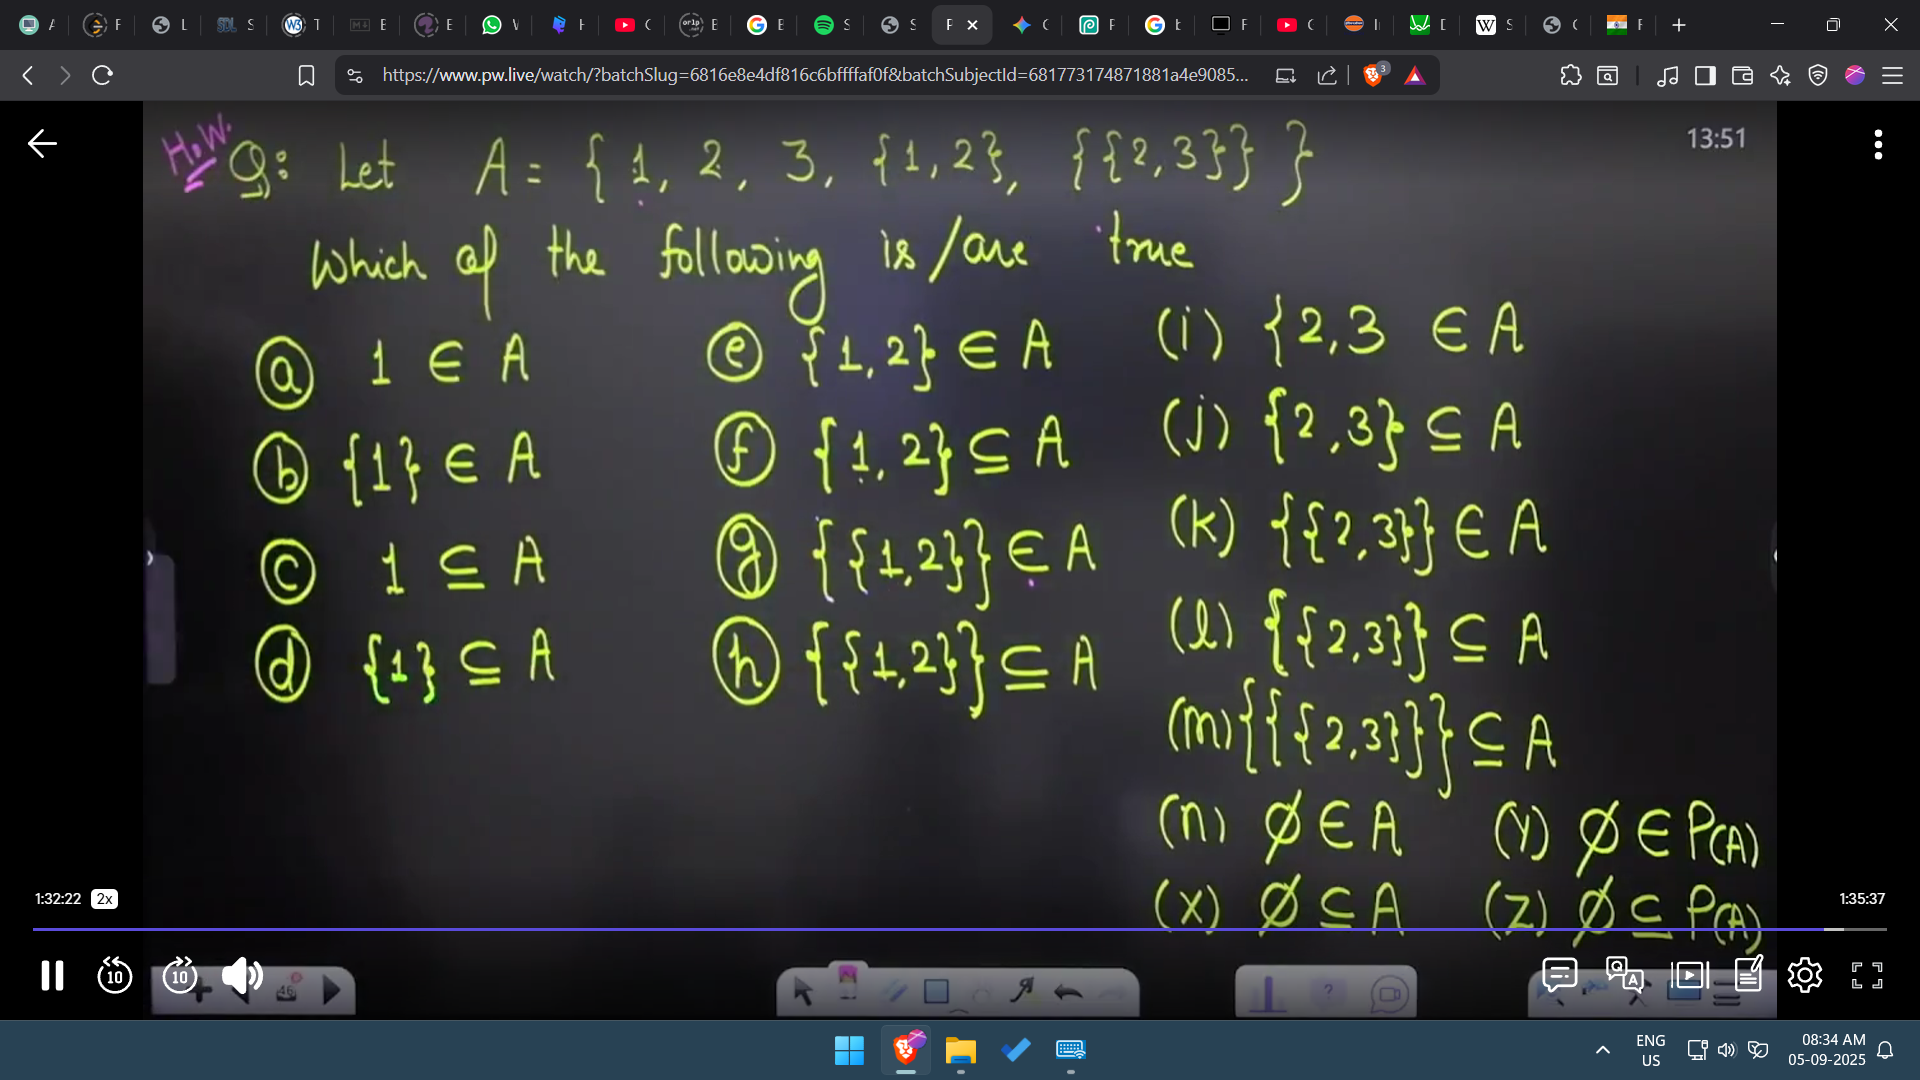 https://www.pw.live/watch/?batchSlug=6816e8e4df816c6bffffaf0f&batchSubjectId=681773174871881a4e9085...
3
H.W.
Q: Let A = { 1, 2, 3, {1,2}, {{2,3}} }
13:51
Which of the following is/are true
ⓐ 1 ∈ A
ⓑ {1} ∈ A
ⓒ 1 ⊆ A
ⓓ {1} ⊆ A
ⓔ {1,2} ∈ A
ⓕ {1,2} ⊆ A
ⓖ {{1,2}} ∈ A
ⓗ {{1,2}} ⊆ A
(i) {2,3 ∈ A
(j) {2,3} ⊆ A
(k) {{2,3}} ∈ A
(l) {{2,3}} ⊆ A
(m) {{{2,3}}} ⊆ A
(n) ∅ ∈ A
(x) ∅ ⊆ A
(Y) ∅ ∈ P(A)
(Z) ∅ ⊆ P(A)
1:32:22 2x
1:35:37
10 10
46
ENG
US
08:34 AM
05-09-2025